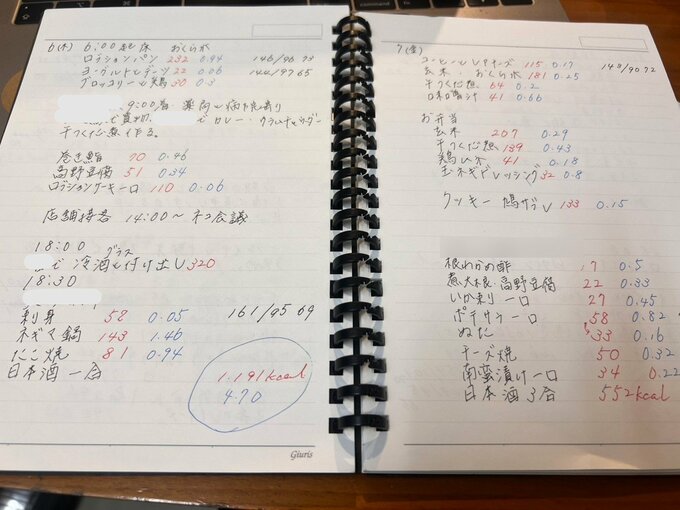 6(木) 6:00起床 おくら水
ロクションパン 232 0.94 146/96 73
ヨーグルトとデーツ 22 0.06 144/97 65
ブロッコリーと鶏 30 0.3
9:00
で買物. でカレー・
干つくだ煮作る。
巻き鮨 70 0.46
高野豆腐 51 0.34
ロクションケーキ一口 110 0.06
店舗接客 14:00〜ネコ会議
18:00 グラス
で 冷酒と付け出し 320
18:30
刺身 58 0.05 161/95 69
ネギマ鍋 143 1.46
たこ焼 81 0.94
日本酒 一合
1.191kcal
4.70
Giuris
7(金)
コーヒー チーズ 115 0.17 149/90 72
玄米. おくら水 181 0.25
干つくだ煮 64 0.2
味噌汁 41 0.66
お弁当
玄米 207 0.29
干つくだ煮 139 0.43
鶏 41 0.18
玉ネギドレッシング 32 0.8
クッキー 鳩サブレ 133 0.15
根わかめ酢 17 0.5
煮大根. 高野豆腐 22 0.33
いか 一口 27 0.45
ポテサラ一口 58 0.82
ぬた 33 0.16
チーズ焼 50 0.32
南蛮漬け一口 34 0.22
日本酒 3合 552kcal